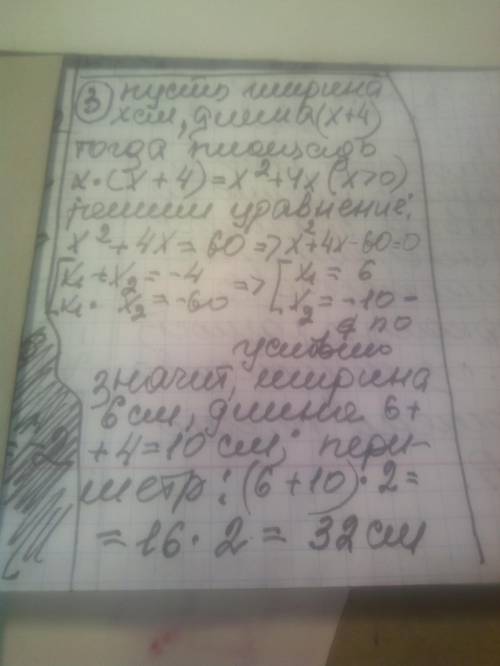 ③ пусть ширина
x см, длина (x+4)
тогда площадь
x·(x+4)=x²+4x (x>0)
решим уравнение:
x²+4x=60=>x²+4x-60=0
[x₁+x₂=-4 => [x₁=6
x₁·x₂=-60 x₂=-10-
∉ по
условию
значит, ширина
6 см, длина 6+
+4=10 см; пери-
метр: (6+10)·2=
=16·2=32 см